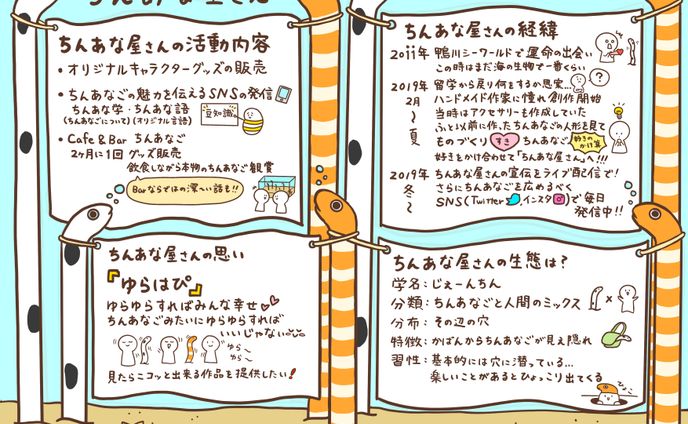 ちんあな屋さん
ちんあな屋さんの活動内容
・オリジナルキャラクターグッズの販売
・ちんあなごの魅力を伝えるSNSの発信
ちんあな学・ちんあな語
(ちんあなごについて)(オリジナル言語)
豆知識
・Cafe&Bar ちんあなご
2ヶ月に1回 グッズ販売
飲食しながら本物のちんあなご観賞
Barならではの深〜い話も!!
ちんあな屋さんの経緯
20ii年 鴨川シーワールドで運命の出会い
この時はまだ海の生物で一番くらい
2019年 留学から戻り何をするか思案...
2月 ハンドメイド作家に憧れ創作開始
〜 当時はアクセサリーも作成していた
夏 ふと以前に作ったちんあなごの人形を見て
ものづくり すき ちんあなご 好きのかけ算
好きをかけ合わせて「ちんあな屋さん」へ!!!
2019年 ちんあな屋さんの宣伝をライブ配信で!
冬〜 さらにちんあなごを広めるべく
SNS(Twitter、インスタ)で毎日
発信中!!
ちんあな屋さんの思い
『ゆらはぴ』
ゆらゆらすればみんな幸せ
ちんあなごみたいにゆらゆらすれば
いいじゃない
ゆら〜
ゆら〜
見たらニコッと出来る作品を提供したい!
ちんあな屋さんの生態は?
学名:じぇーんちん
分類:ちんあなごと人間のミックス
×
分布:その辺の穴
特徴:かばんからちんあなごが見え隠れ
習性:基本的には穴に潜っている...
楽しいことがあるとひょっこり出てくる
ひょこ